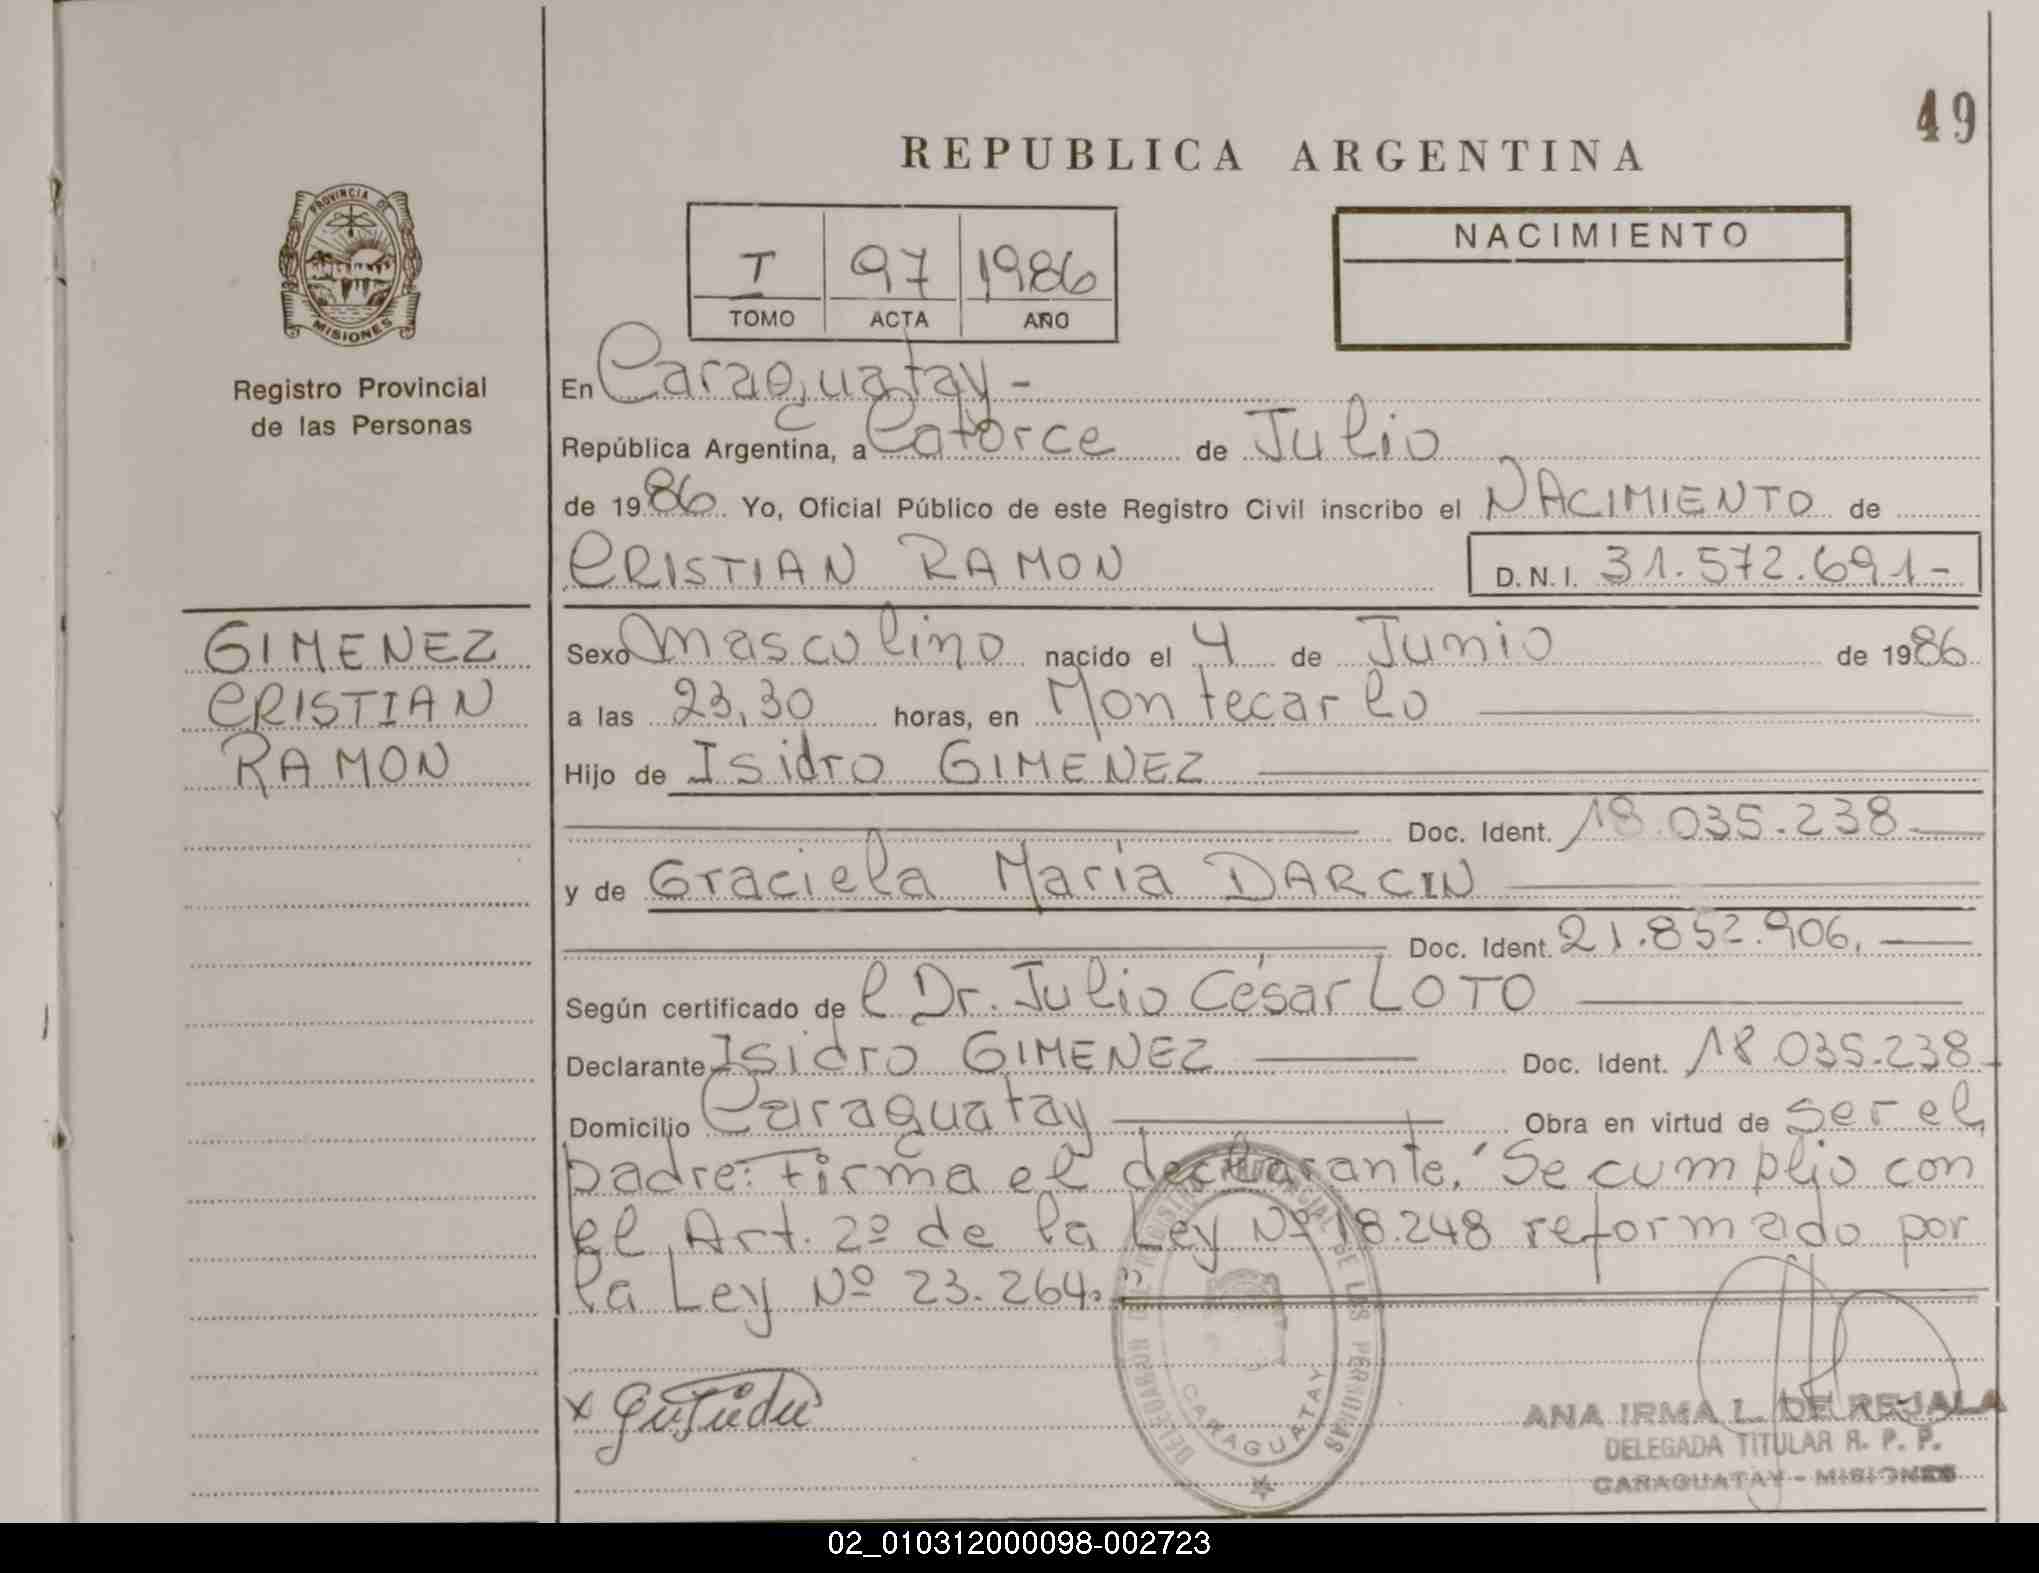 49
REPUBLICA ARGENTINA
PROVINCIA DE
MISIONES
Registro Provincial
de las Personas
I 97 1986
TOMO ACTA AÑO
NACIMIENTO
En Caraguatay -
República Argentina, a Catorce de Julio
de 1986 Yo, Oficial Público de este Registro Civil inscribo el NACIMIENTO de
CRISTIAN RAMON D.N.I. 31.572.691-
GIMENEZ
CRISTIAN
RAMON
Sexo masculino nacido el 4 de Junio de 1986
a las 23,30 horas, en Montecarlo
Hijo de Isidro GIMENEZ
Doc. Ident. 18.035.238
y de Graciela María DARCIN
Doc. Ident. 21.852.906.
Según certificado de l Dr. Julio César LOTO
Declarante Isidro GIMENEZ Doc. Ident. 18.035.238
Domicilio Caraguatay Obra en virtud de ser el
padre: Firma el declarante. "Se cumplio con
el Art. 2º de la Ley Nº 18.248 reformado por
la Ley Nº 23.264."
DELEGACION DEL REGISTRO PROVINCIAL DE LAS PERSONAS
CARAGUATAY
x
ANA IRMA L. DE REJALA
DELEGADA TITULAR R. P. P.
CARAGUATAY - MISIONES
02_010312000098-002723